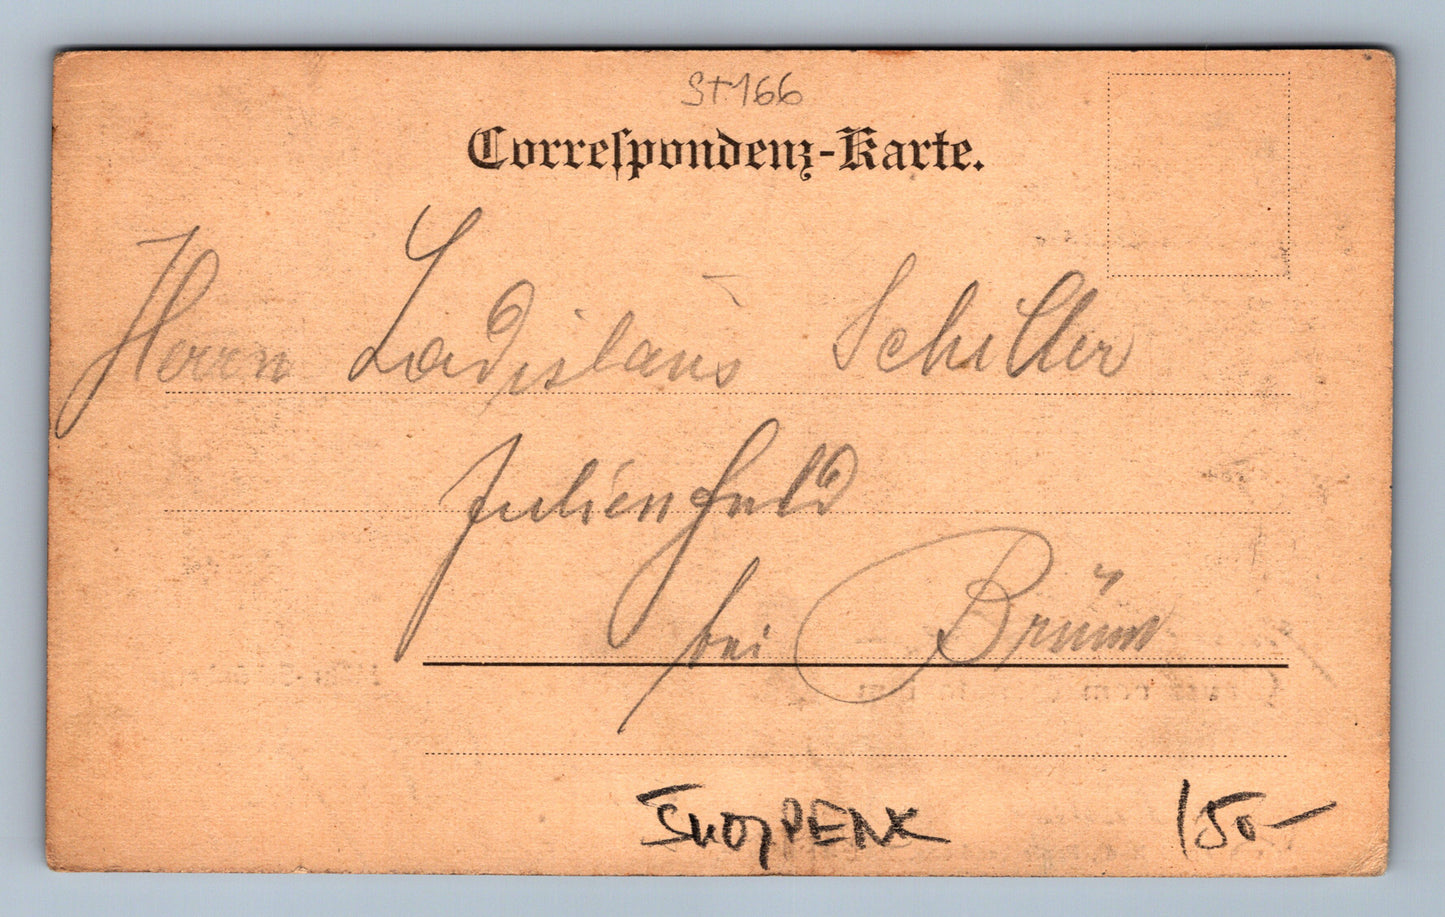 St 166
Correspondenz-Karte.
Herrn Ladislaus Schiller
Julienfeld
bei Brünn
150-